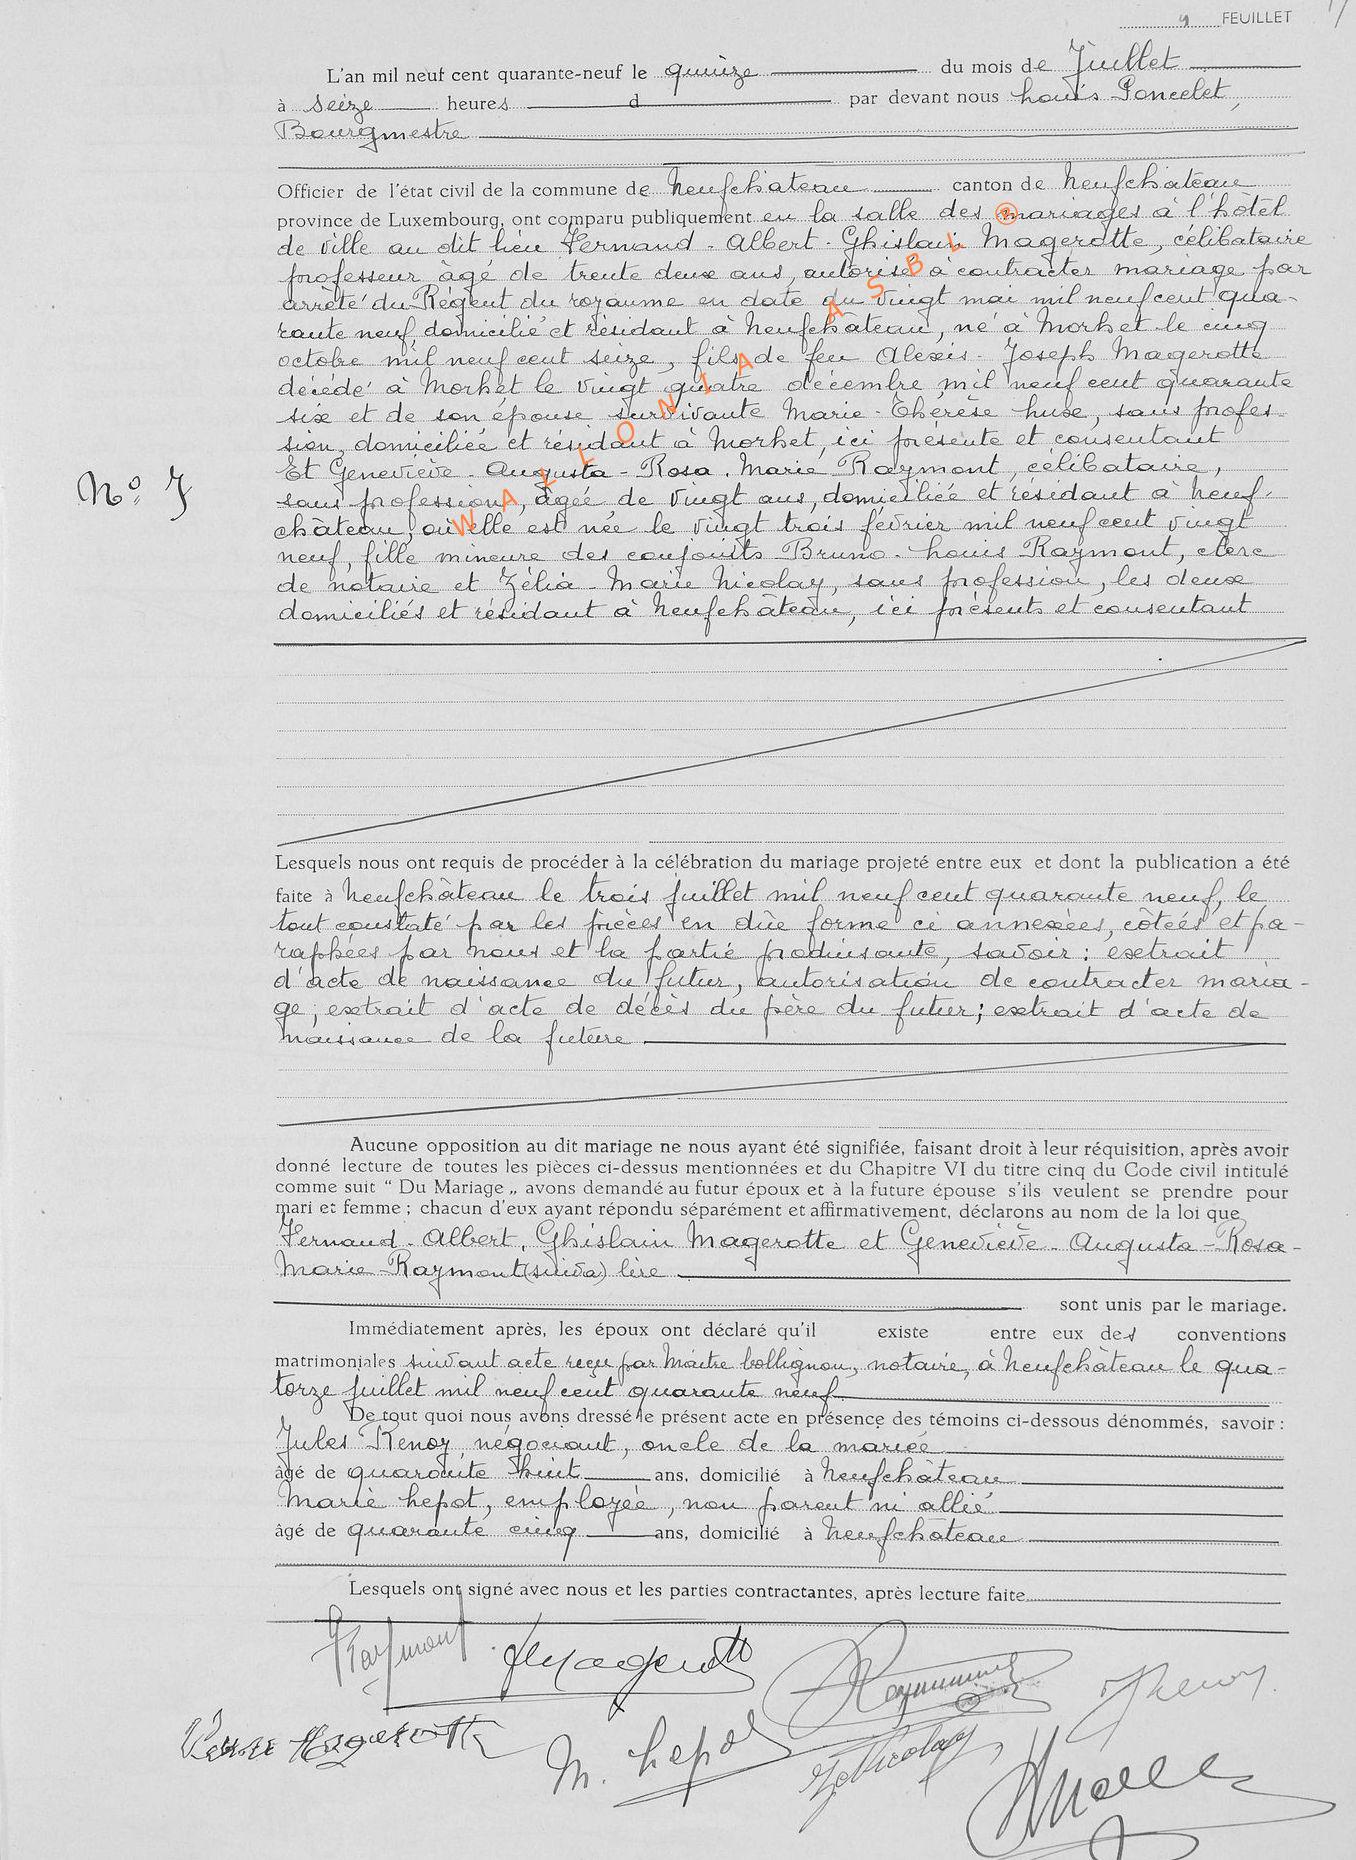 4 FEUILLET
L'an mil neuf cent quarante-neuf le quinze du mois de Juillet
à seize heures d par devant nous Louis Poncelet,
Bourgmestre
Officier de l'état civil de la commune de Neufchâteau canton de Neufchâteau
province de Luxembourg, ont comparu publiquement en la salle des mariages à l'hôtel
de ville au dit lieu Fernand - Albert - Ghislain Magerotte, célibataire
professeur, âgé de trente deux ans, autorisé à contracter mariage par
arrêté du Régent du royaume en date du vingt mai mil neuf cent qua-
rante neuf, domicilié et résidant à Neufchâteau, né à Morhet le cinq
octobre mil neuf cent seize, fils de feu Alexis - Joseph Magerotte
décédé à Morhet le vingt quatre décembre mil neuf cent quarante
six et de son épouse survivante Marie - Thérèse Luxe, sans profes-
sion, domiciliée et résidant à Morhet, ici présente et consentant
Et Geneviève - Augusta - Rosa - Marie Raymont, célibataire,
sans profession, âgée de vingt ans, domiciliée et résidant à Neuf-
N° 7
château, où elle est née le vingt trois février mil neuf cent vingt
neuf, fille mineure des conjoints Bruno - Louis Raymont, clerc
de notaire et Zélia - Marie Nicolay, sans profession, les deux
domiciliés et résidant à Neufchâteau, ici présents et consentant
WALLONIA ASBL ®
Lesquels nous ont requis de procéder à la célébration du mariage projeté entre eux et dont la publication a été
faite à Neufchâteau le trois juillet mil neuf cent quarante neuf, le
tout constaté par les pièces en dûe forme ci annexées, côtées et pa-
raphées par nous et la partie produisante, savoir : extrait
d'acte de naissance du futur, autorisation de contracter maria-
ge ; extrait d'acte de décès du père du futur ; extrait d'acte de
naissance de la future
Aucune opposition au dit mariage ne nous ayant été signifiée, faisant droit à leur réquisition, après avoir
donné lecture de toutes les pièces ci-dessus mentionnées et du Chapitre VI du titre cinq du Code civil intitulé
comme suit “ Du Mariage „ avons demandé au futur époux et à la future épouse s'ils veulent se prendre pour
mari et femme ; chacun d'eux ayant répondu séparément et affirmativement, déclarons au nom de la loi que
Fernand - Albert - Ghislain Magerotte et Geneviève - Augusta - Rosa -
Marie - Raymont (suiva) lire
sont unis par le mariage.
Immédiatement après, les époux ont déclaré qu'il existe entre eux des conventions
matrimoniales suivant acte reçu par Maître Collignon, notaire, à Neufchâteau le qua-
torze juillet mil neuf cent quarante neuf
De tout quoi nous avons dressé le présent acte en présence des témoins ci-dessous dénommés, savoir :
Jules Renoy, négociant, oncle de la mariée
âgé de quarante huit ans, domicilié à Neufchâteau
Marie Lepot, employée, non parent ni allié
âgé de quarante cinq ans, domicilié à Neufchâteau
Lesquels ont signé avec nous et les parties contractantes, après lecture faite
Raymont Magerotte Raymont J Renoy
Magerotte M. Lepot Z Nicolay